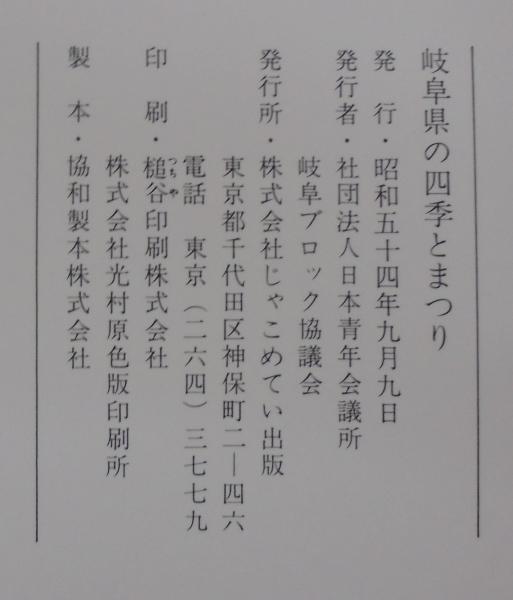 岐阜県の四季とまつり
発行・昭和五十四年九月九日
発行者・社団法人日本青年会議所
岐阜ブロック協議会
発行所・株式会社じゃこめてい出版
東京都千代田区神保町二―四六
電話　東京（二六四）三七七九
印刷・槌谷印刷株式会社
つちや
株式会社光村原色版印刷所
製本・協和製本株式会社